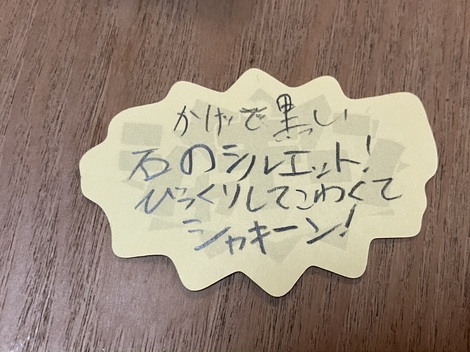 かげで黒い
石のシルエット!
びっくりしてこわくて
シャキーン!